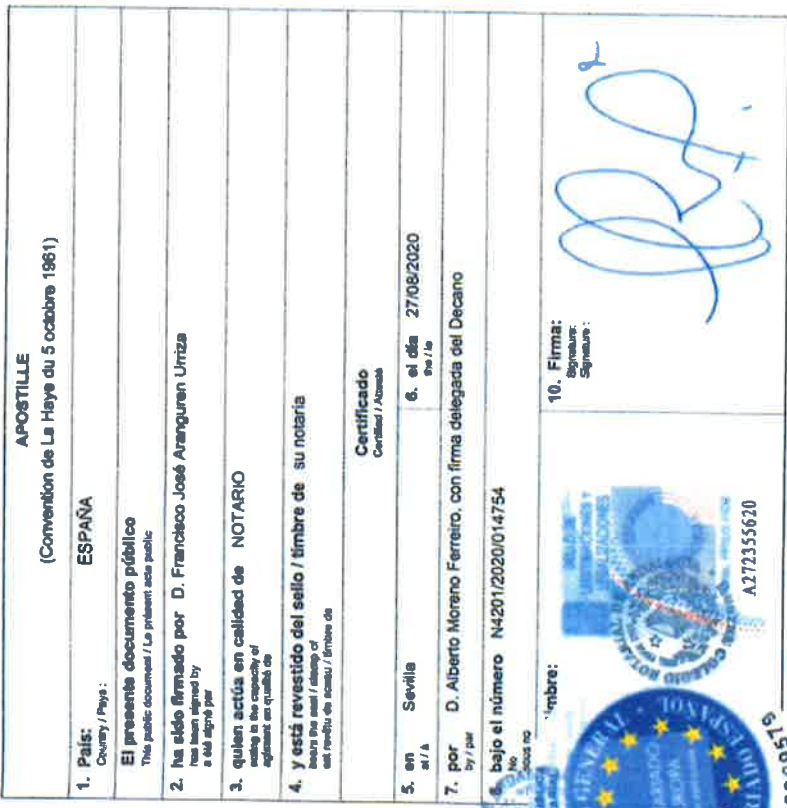 APOSTILLE
(Convention de La Haye du 5 octobre 1961)
1. País: ESPAÑA
Country / Pays :
El presente documento público
This public document / Le présent acte public
2. ha sido firmado por D. Francisco José Aranguren Urriza
has been signed by
a été signé par
3. quien actúa en calidad de NOTARIO
acting in the capacity of
agissant en qualité de
4. y está revestido del sello / timbre de su notaria
bears the seal / stamp of
est revêtu du sceau / timbre de
Certificado
Certified / Attesté
5. en Sevilla
at / à
6. el día 27/08/2020
the / le
7. por D. Alberto Moreno Ferreiro, con firma delegada del Decano
by / par
8. bajo el número N4201/2020/014754
No
sous no
mbre:
10. Firma:
Signature:
Signature :
A272355620
COLEGIO NOTARIAL
GENERAL
ESPAÑOL
NOTARIADO
EUROPA